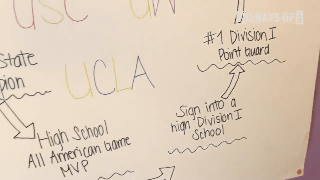 USC
UW
DAYS OF
#1 Division I
Point Guard
State
pion
UCLA
Sign into a
high Division I
School
High School
All American Game
MVP